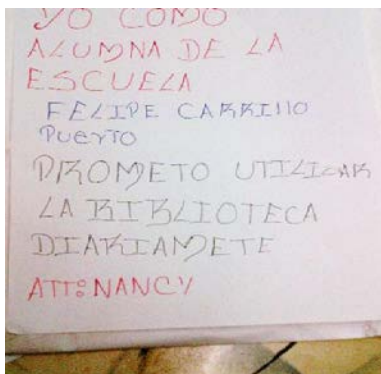 YO COMO
ALUMNA DE LA
ESCUELA
FELIPE CARRILLO
PUERTO
PROMETO UTILIZAR
LA BIBLIOTECA
DIARIAMETE
ATT:NANCY